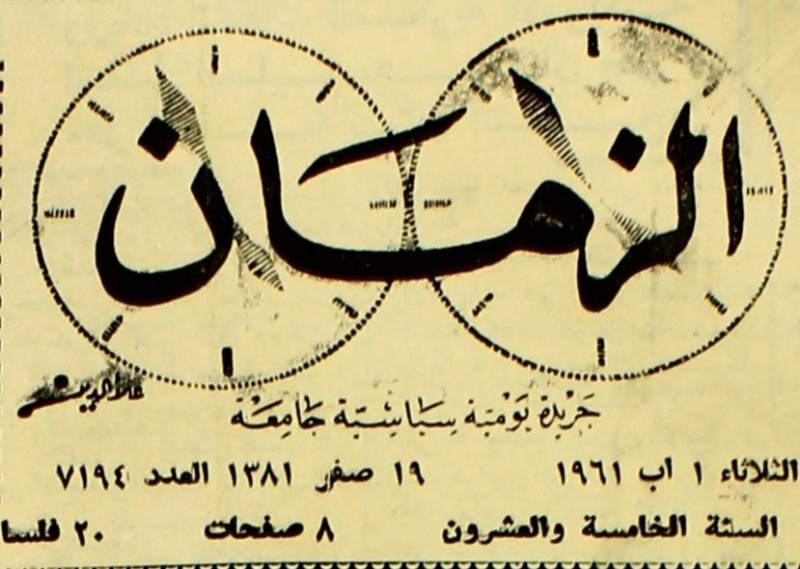 الزمان
علاء الدين
جريدة يومية سياسية جامعة
الثلاثاء ١ اب ١٩٦١ ١٩ صفر ١٣٨١ العدد ٧١٩٤
السنة الخامسة والعشرون ٨ صفحات ٢٠ فلسا